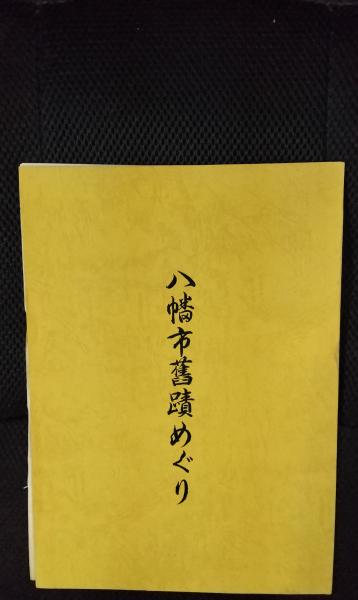 八幡市舊蹟めぐり